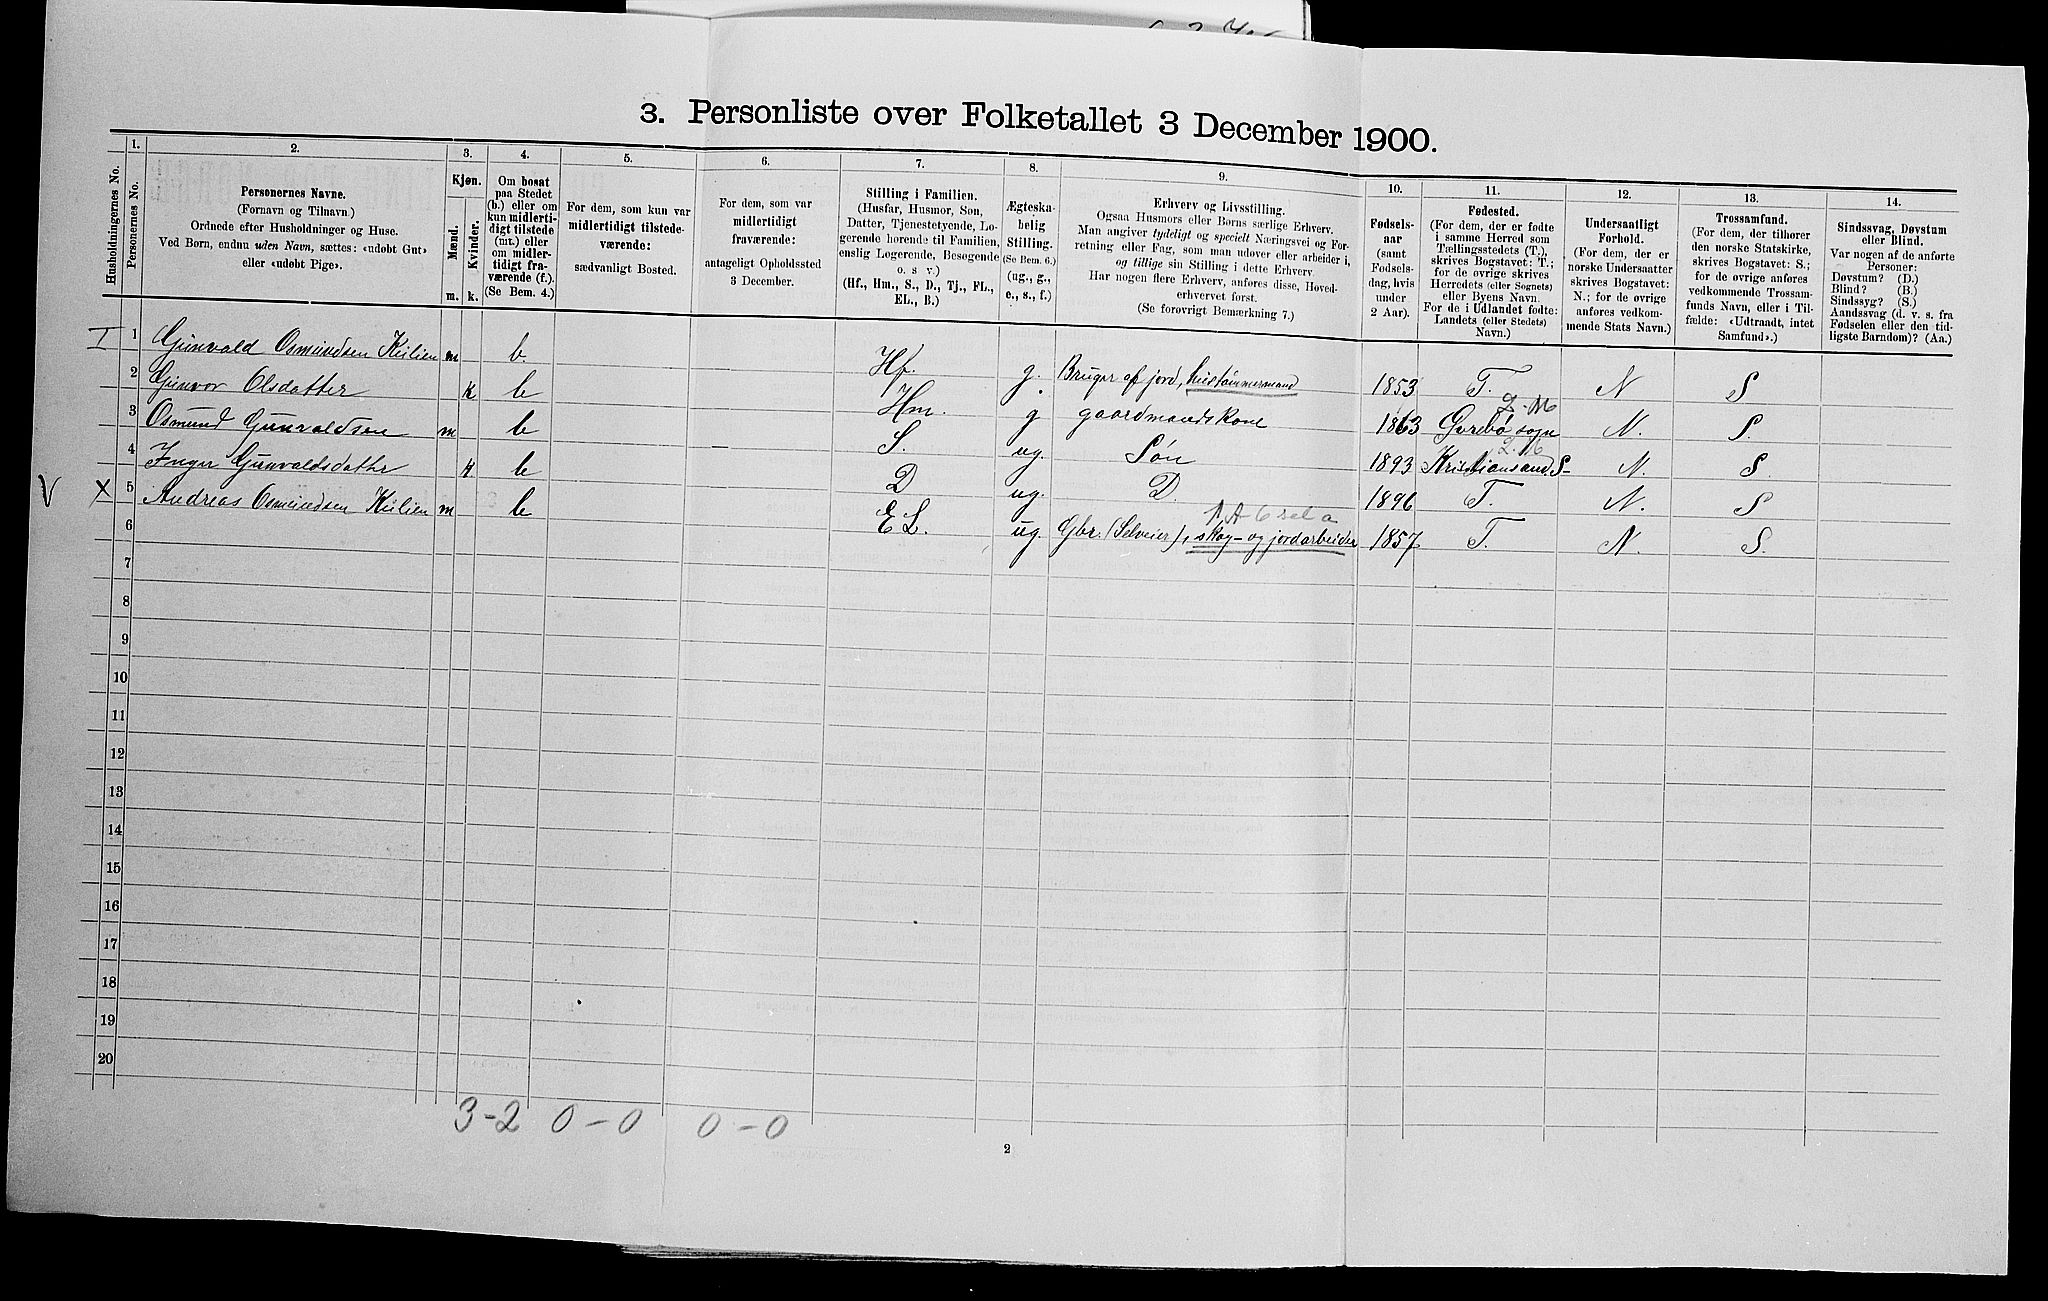 3. Personliste over Folketallet 3 December 1900.
Husholdningernes No.
1.
Personernes No.
2.
Personernes Navne.
(Fornavn og Tilnavn.)
Ordnede efter Husholdninger og Huse.
Ved Børn, endnu uden Navn, sættes: «udøbt Gut»
eller «udøbt Pige».
3.
Kjøn.
Mænd.
Kvinder.
m.
k.
4.
Om bosat
paa Stedet
(b.) eller om
kun midlerti-
digt tilstede
(mt.) eller
om midler-
tidigt fra-
værende (f.).
(Se Bem. 4.)
5.
For dem, som kun var
midlertidigt tilstede-
værende:
sædvanligt Bosted.
6.
For dem, som var
midlertidigt
fraværende:
antageligt Opholdssted
3 December.
7.
Stilling i Familien.
(Husfar, Husmor, Søn,
Datter, Tjenestetyende, Lo-
gerende hørende til Familien,
enslig Logerende, Besøgende
o. s v.)
(Hf., Hm., S., D., Tj., FL.,
EL., B.)
8.
Ægteska-
belig
Stilling.
(Se Bem. 6.)
(ug., g.,
e., s., f.)
9.
Erhverv og Livsstilling.
Ogsaa Husmors eller Børns særlige Erhverv.
Man angiver tydeligt og specielt Næringsvei og For-
retning eller Fag, som man udøver eller arbeider i,
og tillige sin Stilling i dette Erhverv.
Har nogen flere Erhverv, anføres disse, Hoved-
erhvervet først.
(Se forøvrigt Bemærkning 7.)
10.
Fødsels-
aar
(samt
Fødsels-
dag, hvis
under
2 Aar).
11.
Fødested.
(For dem, der er fødte
i samme Herred som
Tællingsstedets (T.),
skrives Bogstavet: T.;
for de øvrige skrives
Herredets (eller Sognets)
eller Byens Navn.
For de i Udlandet fødte:
Landets (eller Stedets)
Navn.)
12.
Undersaatligt
Forhold.
(For dem, der er
norske Undersaatter
skrives Bogstavet:
N.; for de øvrige
anføres vedkom-
mende Stats Navn.)
13.
Trossamfund.
(For dem, der tilhører
den norske Statskirke,
skrives Bogstavet: S.;
for de øvrige anføres
vedkommende Trossam-
funds Navn, eller i Til-
fælde: «Udtraadt, intet
Samfund».)
14.
Sindssvag, Døvstum
eller Blind.
Var nogen af de anførte
Personer:
Døvstum? (D.)
Blind? (B.)
Sindssyg? (S.)
Aandssvag (d. v. s. fra
Fødselen eller den tid-
ligste Barndom)? (Aa.)
I 1 Gunvald Osmundsen Kilien m b. Hf. g. Bruger af jord, hustømmermand 1853 T. N S
2 Gunvor Olsdatter k b Hm. g gaardmandskone 1863 Øvrebø sogn N. S.
3 Osmund Gunvaldsen m b S. ug. Søn 1893 Kristiansand S- N. S.
4 Inger Gunvaldsdatter k b D ug. D. 1896 T. N. S
V X 5 Andreas Osmundsen Kilien m b EL. ug. Gbr. (Selveier), skog- og jordarbeider 1857 T. N. S.
6
7
8
9
10
11
12
13
14
15
16
17
18
19
20
3-2 0-0 0-0
2